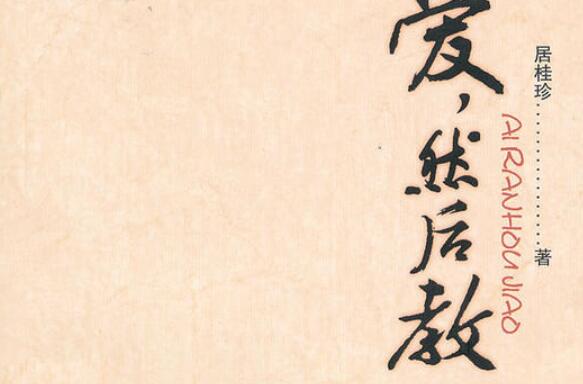 居桂珍..................著
AI RANHOU JIAO
爱，然后教